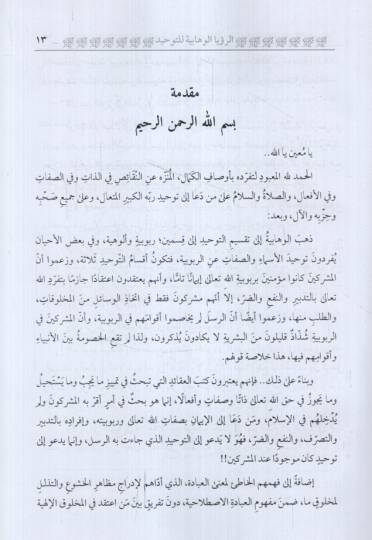 الرؤيا الوهابية للتوحيد ١٣
مقدمة
بسم الله الرحمن الرحيم
يا مُعين يا الله..
الحمد لله المعبودِ لتفرّده بأوصافِ الكمال، المُنَزّه عنِ النّقائصِ في الذّاتِ وفي الصفاتِ
وفي الأفعال، والصلاةُ والسلامُ على من دَعَا إلى توحيد ربّه الكبير المتعال، وعلى جميعِ صَحْبِه
وحِزبِه والآل، وبعد:
ذهبَ الوهابيةُ إلى تقسيمِ التوحيدِ إلى قِسمين؛ ربوبية وألوهية، وفي بعض الأحيان
يُفردونَ توحيدَ الأسماءِ والصفات عن الربوبية، فتكونُ أقسامُ التّوحيدِ ثلاثة، وزعموا أنّ
المشركين كانوا مؤمنينَ بربوبيةِ الله تعالى إيمانًا تامًّا، وأنهم يعتقدون اعتقادًا جازمًا بتفرّدِ الله
تعالى بالتدبيرِ والنفعِ والضرّ، إلا أنهم مشركونَ فقط في اتخاذِ الوسائلِ منَ المخلوقات،
والطلبِ منها، وزعموا أيضًا أنّ الرسل لم يخاصموا أقوامَهم في الربوبية، وأنّ المشركينَ في
الربوبية شُذّاذٌ قليلونَ منَ البشريةِ لا يكادونَ يُذكرون، ولذا لم تقعِ الخصومةُ بينَ الأنبياءِ
وأقوامِهم فيها، هذا خلاصة قولهم.
وبناءً على ذلك.. فإنهم يعتبرونَ كتبَ العقائدِ التي تبحثُ في تمييزِ ما يجبُ وما يَستَحيلُ
وما يجوزُ في حق الله تعالى ذاتًا وصفاتٍ وأفعالًا، إنما هو بحثٌ في أمرٍ أقرّ به المشركونَ ولم
يُدْخِلهُم في الإسلامِ، ومَن دَعَا إلى الإيمانِ بصفاتِ الله تعالى وربوبيته، وإفراده بالتدبير
والتصرّف، والنفعِ والضرّ، فهُوَ لا يَدعو إلى التوحيدِ الذي جاءت به الرسل، وإنما يدعو إلى
توحيدٍ كان موجودًا عند المشركين!!
إضافةً إلى فهمهم الخاطئ لمعنى العبادة، الذي أدّاهم لإدراجِ مظاهرِ الخشوعِ والتذللِ
لمخلوقٍ ما، ضمنَ مفهومِ العبادةِ الاصطلاحية، دونَ تفريقٍ بينَ مَن اعتقد في المخلوق الإلهية